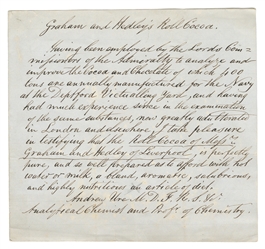 Graham and Hedley's Roll Cocoa.
Having been employed by the Lords Com-
missioners of the Admiralty to analyze and
improve the Cocoa and Chocolate of which 400
tons are annually manufactured for the Navy
at the Deptford Victualling Yard, and having
had much experience since in the examination
of the same substances, now greatly adulterated
in London and elsewhere, I take pleasure
in testifying that the Roll Cocoa of Messrs
Graham and Hedley of Liverpool, is perfectly
pure, and so well prepared as to afford with hot
water or milk, a bland, aromatic, salubrious,
and highly nutritious an article of diet.
Andrew Ure M.D. F.R.S. &c
Analytical Chemist and Prof. of Chemistry.